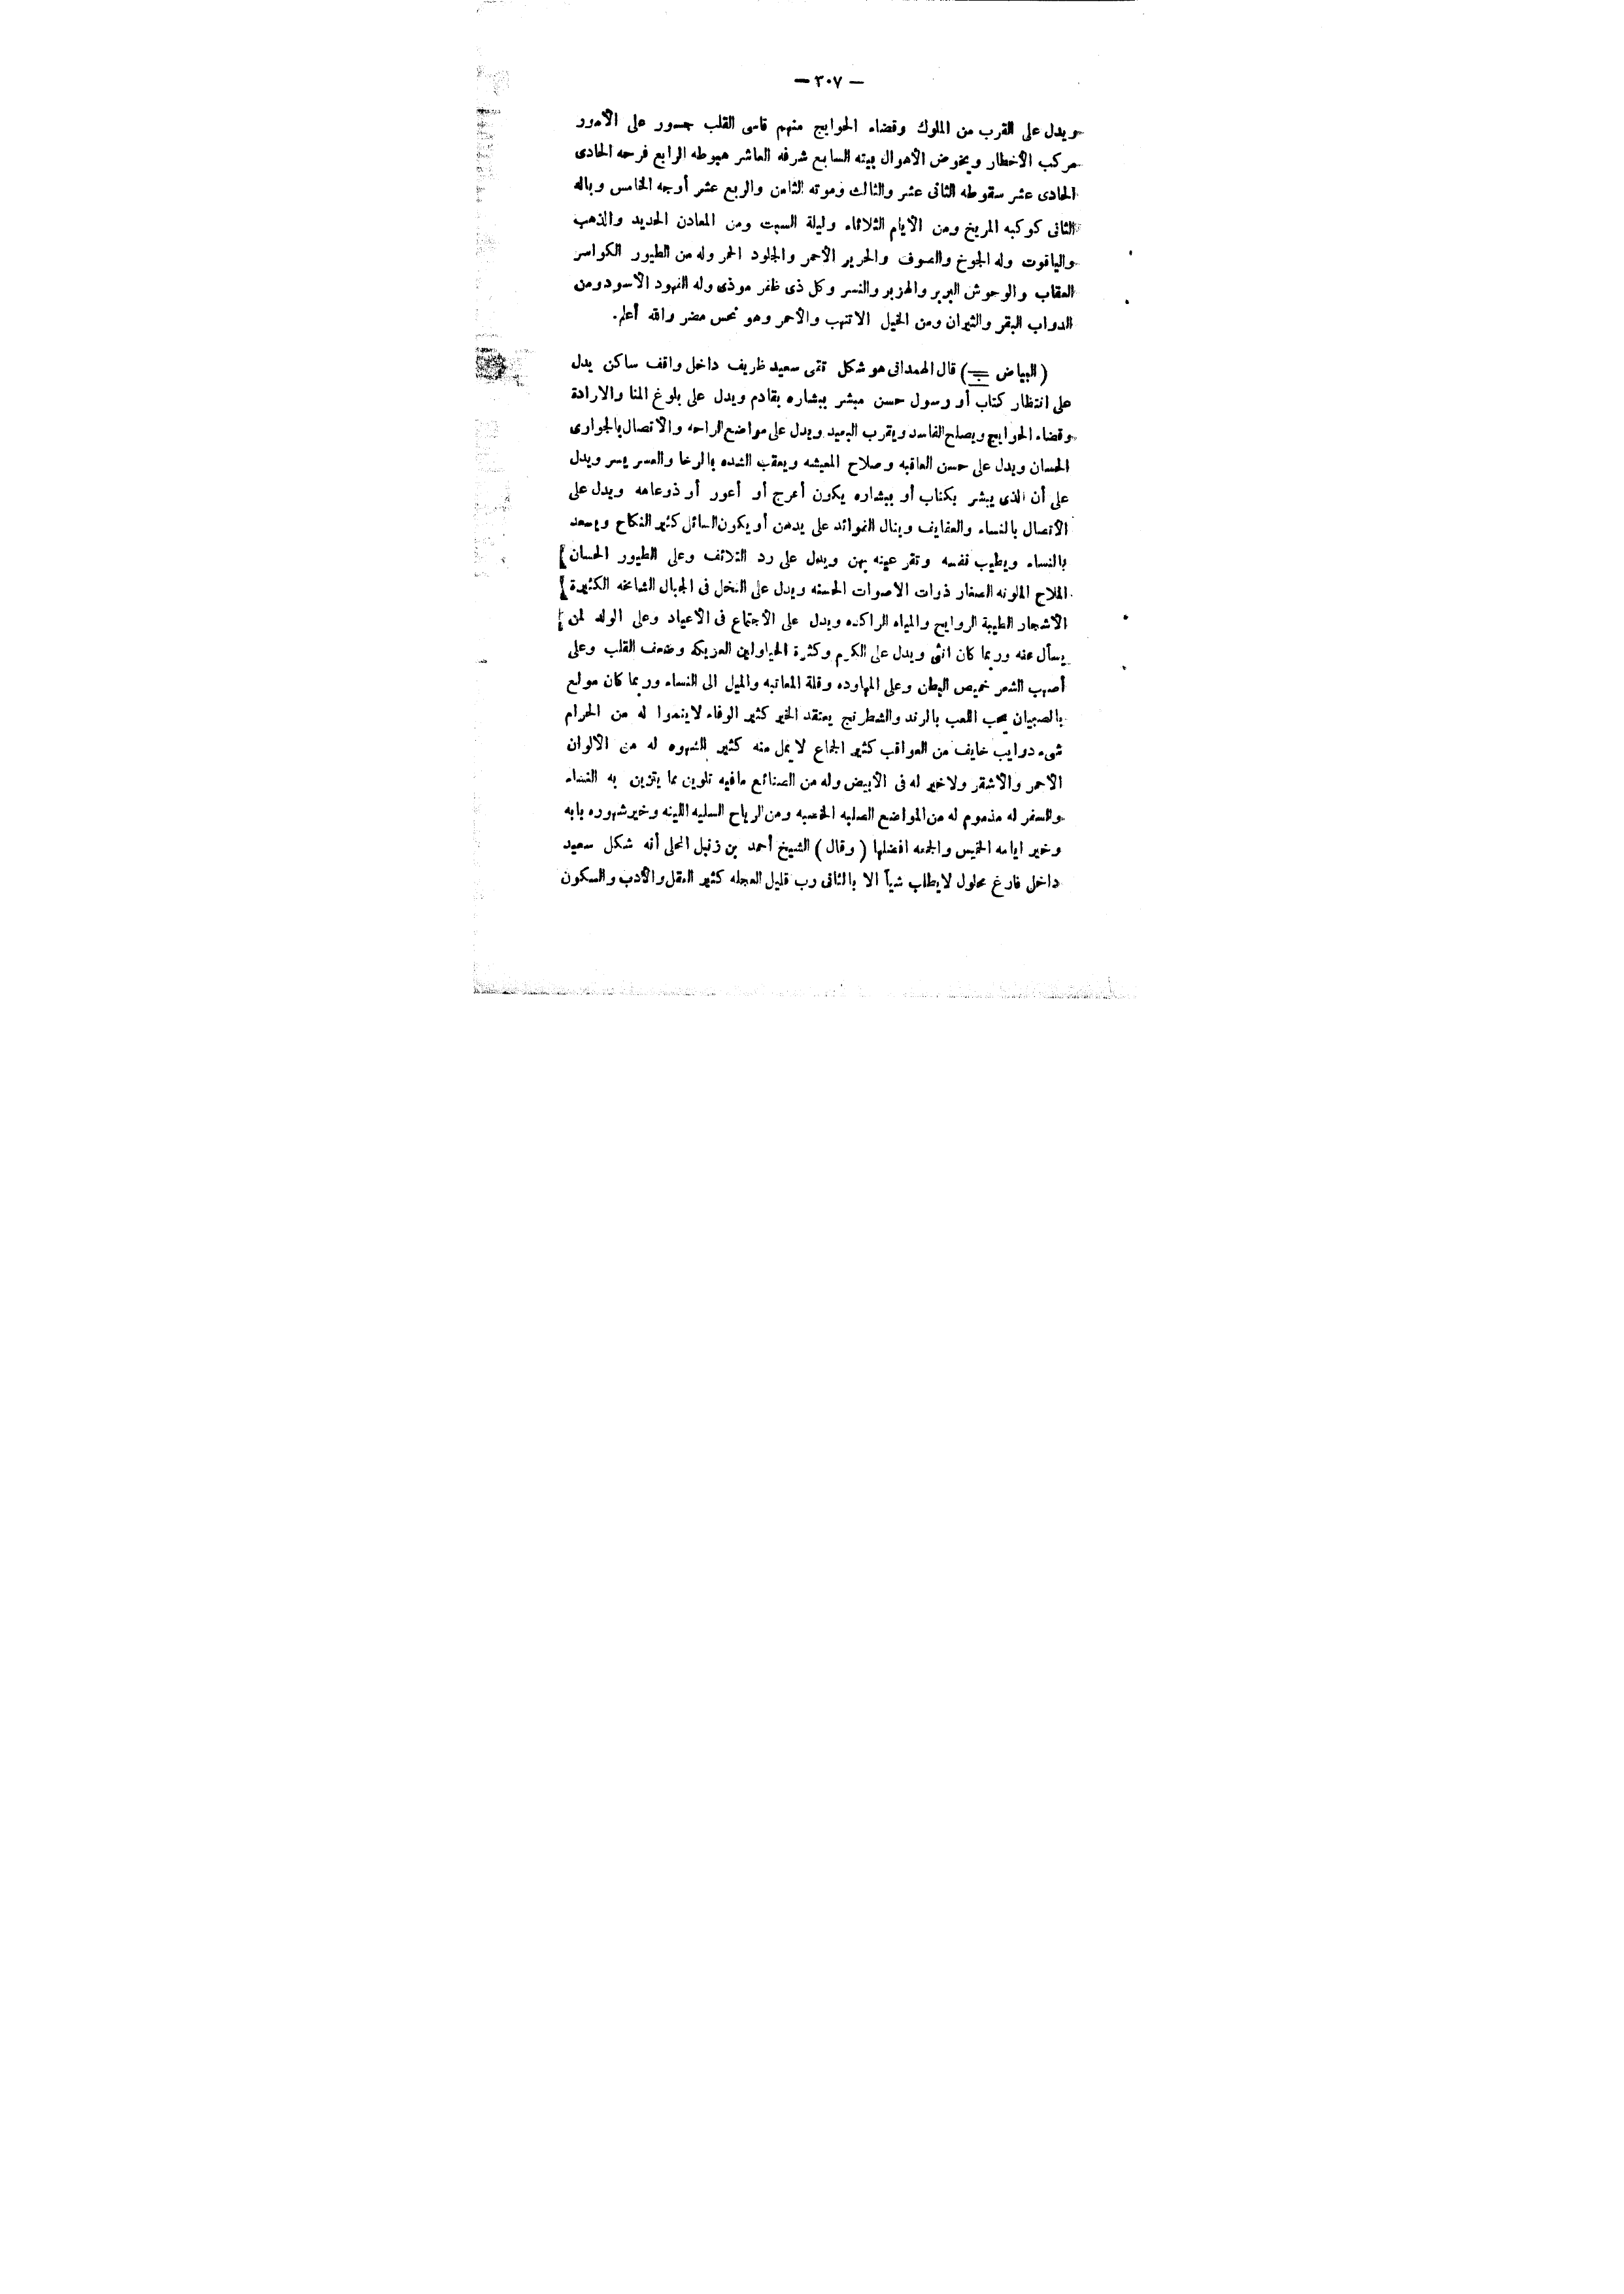 — ٣٠٧ —
ويدل على القرب من الملوك وقضاء الحوايج منهم قاسى القلب جسور على الأمور
مركب الأخطار ويخوض الأهوال بيته السابع شرفه العاشر هبوطه الرابع فرحه الحادى
الحادى عشر سقوطه الثانى عشر والثالث وموته الثامن والربع عشر أوجه الخامس وباله
الثانى كوكبه المريخ ومن الأيام الثلاثاء وليلة السبت ومن المعادن الحديد والذهب
والياقوت وله الجوخ والصوف والحرير الأحمر والجلود الحمر وله من الطيور الكواسر
العقاب والوحوش البربر والهزبر والنسر وكل ذى ظفر موذى وله الفهود الأسود ومن
الدواب البقر والثيران ومن الخيل الاتنهب والأحمر وهو نحس مضر والله أعلم.
( البياض ) قال الهمدانى هو شكل قمى سعيد ظريف داخل واقف ساكن يدل
على انتظار كتاب أو رسول حسن مبشر ببشاره بقادم ويدل على بلوغ المنا والارادة
وقضاء الحوايج ويصلح الفاسد ويقرب البعيد ويدل على مواضع الراحه والاتصال بالجوارى
الحسان ويدل على حسن العاقبه وصلاح المعيشه ويعقب الشده بالرخا والعسر يسر ويدل
على أن الذى يبشر بكتاب أو ببشاره يكون أعرج أو أعور أو ذو عاهه ويدل على
الاتصال بالنساء والعفايف وينال الفوائد على يدهن أو يكون السائل كثير النكاح ويسعد
بالنساء ويطيب نفسه وتقر عينه بهن ويدل على رد التلائف وعلى الطيور الحسان
الملاح الملونه الصغار ذوات الاصوات الحسنه ويدل على النخل فى الجبال الشامخه الكثيرة
الأشجار الطيبة الروايح والمياه الراكده ويدل على الاجتماع فى الأعياد وعلى الولد لمن
يسأل عنه وربما كان انثى ويدل على الكرم وكثرة الحيا ولين العريكه وضعف القلب وعلى
أصهب الشعر خميص البطن وعلى المهاوده وقلة المعاتبه والميل الى النساء وربما كان مولع
بالصبيان يحب اللعب بالرند والشطرنج يعتقد الخير كثير الوفاء لاينموا له من الحرام
شىء دوايب خايف من العواقب كثير الجماع لا يمل منه كثير الشهوه له من الالوان
الاحمر والأشقر ولا خير له فى الأبيض وله من الصنائع مافيه تلوين مما يتزين به النساء
والسفر له مذموم له من المواضع الصلبه الخصبه ومن الرياح السليه اللينه وخير شهوره بابه
وخير ايامه الخميس والجمعه افضلها ( وقال ) الشيخ أحمد بن زنبل المحلى أنه شكل سعيد
داخل فارغ محلول لايطلب شيأ الا بالثانى رب قليل العجله كثير العقل والأدب والسكون